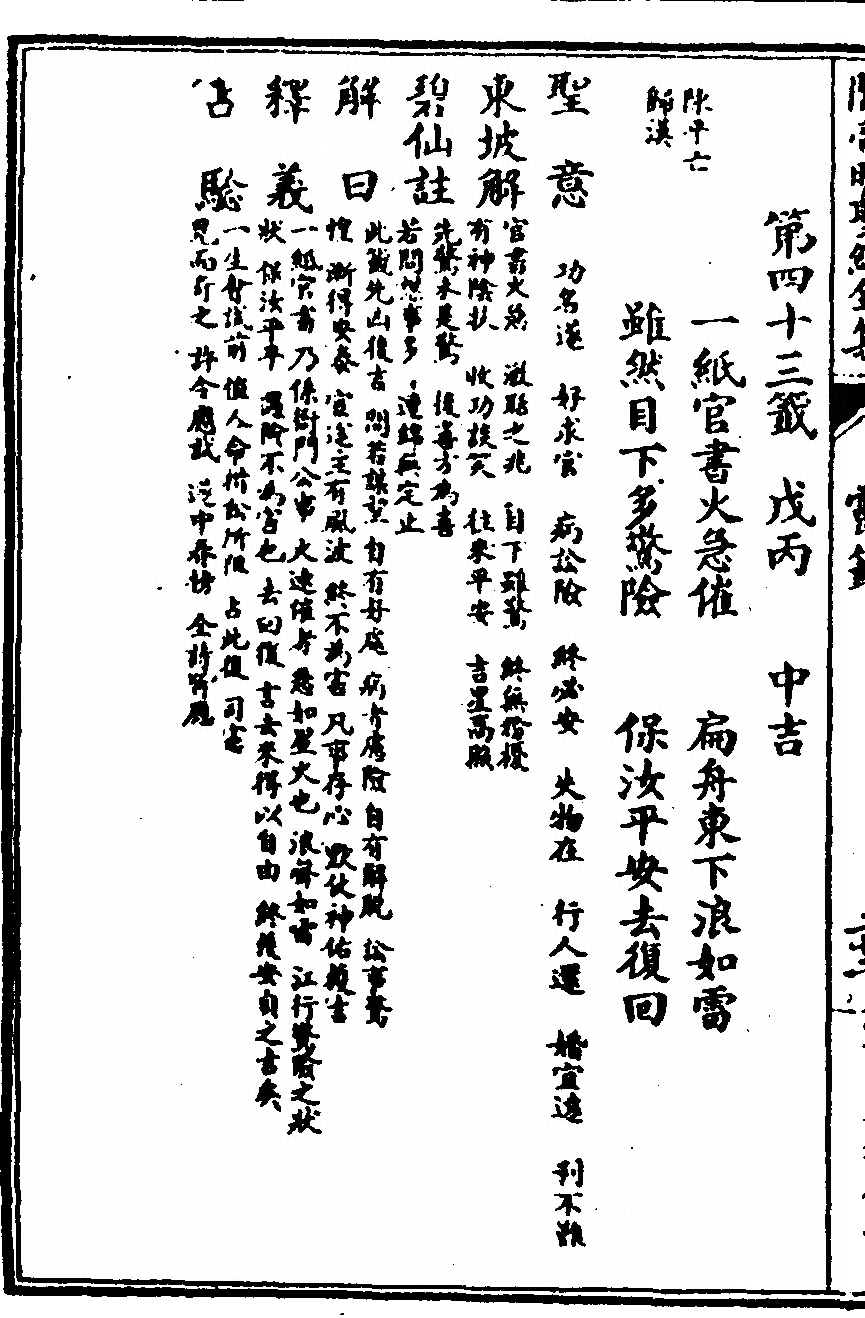 第四十三籤　戊丙　中吉
陳平亡
歸漢
一紙官書火急催　扁舟東下浪如雷
雖然目下多驚險　保汝平安去復回
聖意　功名遂　好求官　病訟險　終必安　失物在　行人還　婚宜遠　別不難
東坡解　官書火急　激聒之兆　目下雖驚　終無擾
有神陰扶　收功談笑　往來平安　吉星高照
碧仙註　先驚未是驚　後喜方為喜
若問終事多　連綿無定止
解曰　此籤先凶後吉　問若謀望　自有好處　病者虛險　自有解脫　訟事驚
惶　漸得安泰　宦途主有風波　終不為害　凡事存心　默仗神佑獲吉
釋義　一紙官書　乃係衙門公事　火速催者　急如星火也　浪聲如雷　江行驚險之狀
狀　保汝平安　遇險不為害也　去回復　言去來得以自由　終獲安貞之吉矣
占驗　一生考試前　值人命